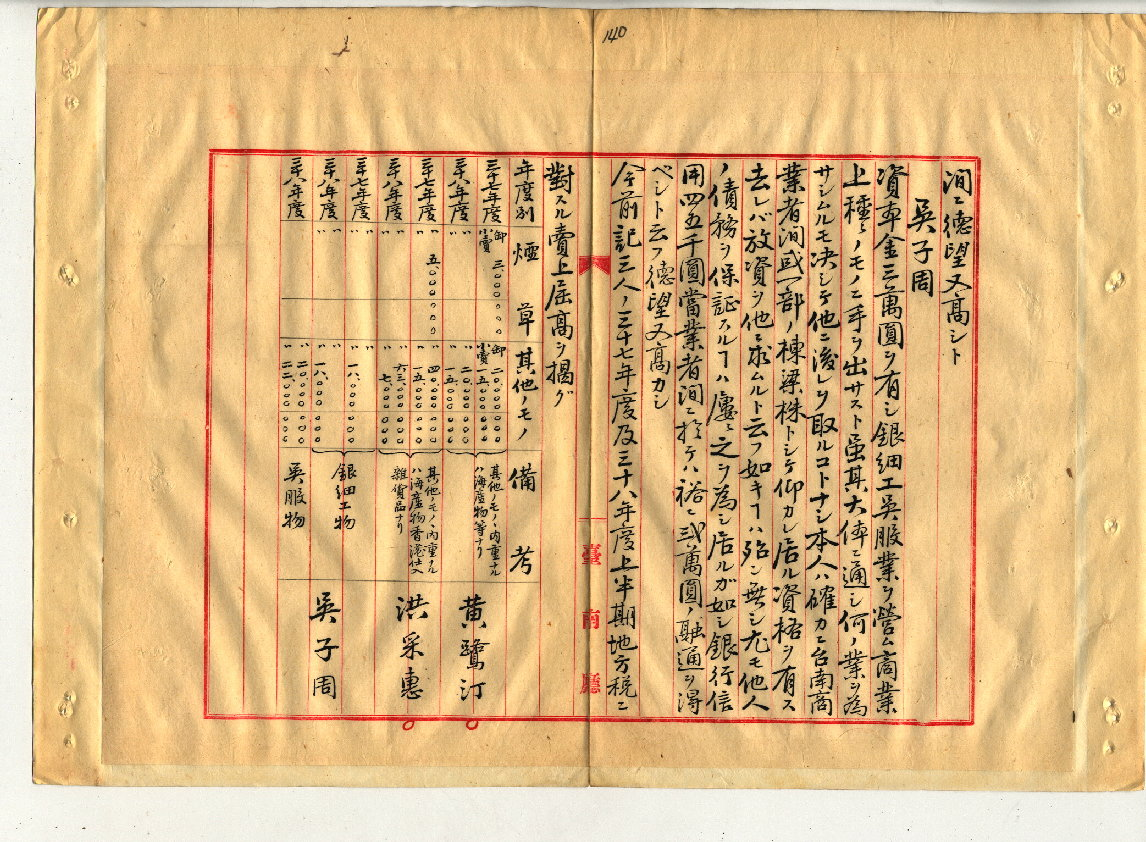 140
間ニ德望又高シト
吳子周
資本金三萬圓ヲ有シ銀細工吳服業ヲ營ム商業
上種々ノモノニ手ヲ出サスト虽其大体ニ通シ何ノ業ヲ為
サシムルモ决シテ他ニ後レヲ取ルコトナシ本人ハ確カニ台南商
業者间或一部ノ棟梁株トシテ仰カレ居ル資格ヲ有ス
去レバ放資ヲ他ニ求ムルト云フ如キヿハ殆ン無シ尤モ他人
ノ債務ヲ保証スルヿハ屢々之ヲ為シ居ルガ如シ銀行信
用四五千圓當業者间ニ於テハ裕ニ貳萬圓ノ融通ヲ得
ベシト云フ德望又高カシ
今前記三人ノ三十七年度及三十八年度上半期地方税ニ
臺南廳
對スル賣上屆高ヲ揭グ
年度別 煙草 其他ノモノ 備考
三十七年度 卸小賣 三、〇〇〇〇〇〇 卸小賣 二〇、〇〇〇〇〇〇 一五、〇〇〇〇〇〇 其他ノモノヽ内重ナルハ海產物等ナリ 黄鷺汀
三十八年度 〃 〃 〃 〃 二〇、〇〇〇〇〇〇 一五、〇〇〇〇〇〇
三十七年度 〃 五、〇〇〇〇〇〇 〃 〃 四〇、〇〇〇〇〇〇 一五、〇〇〇〇〇〇 其他ノモノヽ内重ナルハ海產物香港仕入雜貨品ナリ 洪采惠
三十八年度 〃 〃 〃 六三、〇〇〇〇〇〇 七、〇〇〇〇〇〇
三十七年度 〃 〃 一八、〇〇〇〇〇〇 銀細工物 吳子周
三十八年度 〃 〃 〃 一八、〇〇〇〇〇〇
三十八年度 〃 〃 〃 二二、〇〇〇〇〇〇 二二、〇〇〇〇〇〇 吳服物